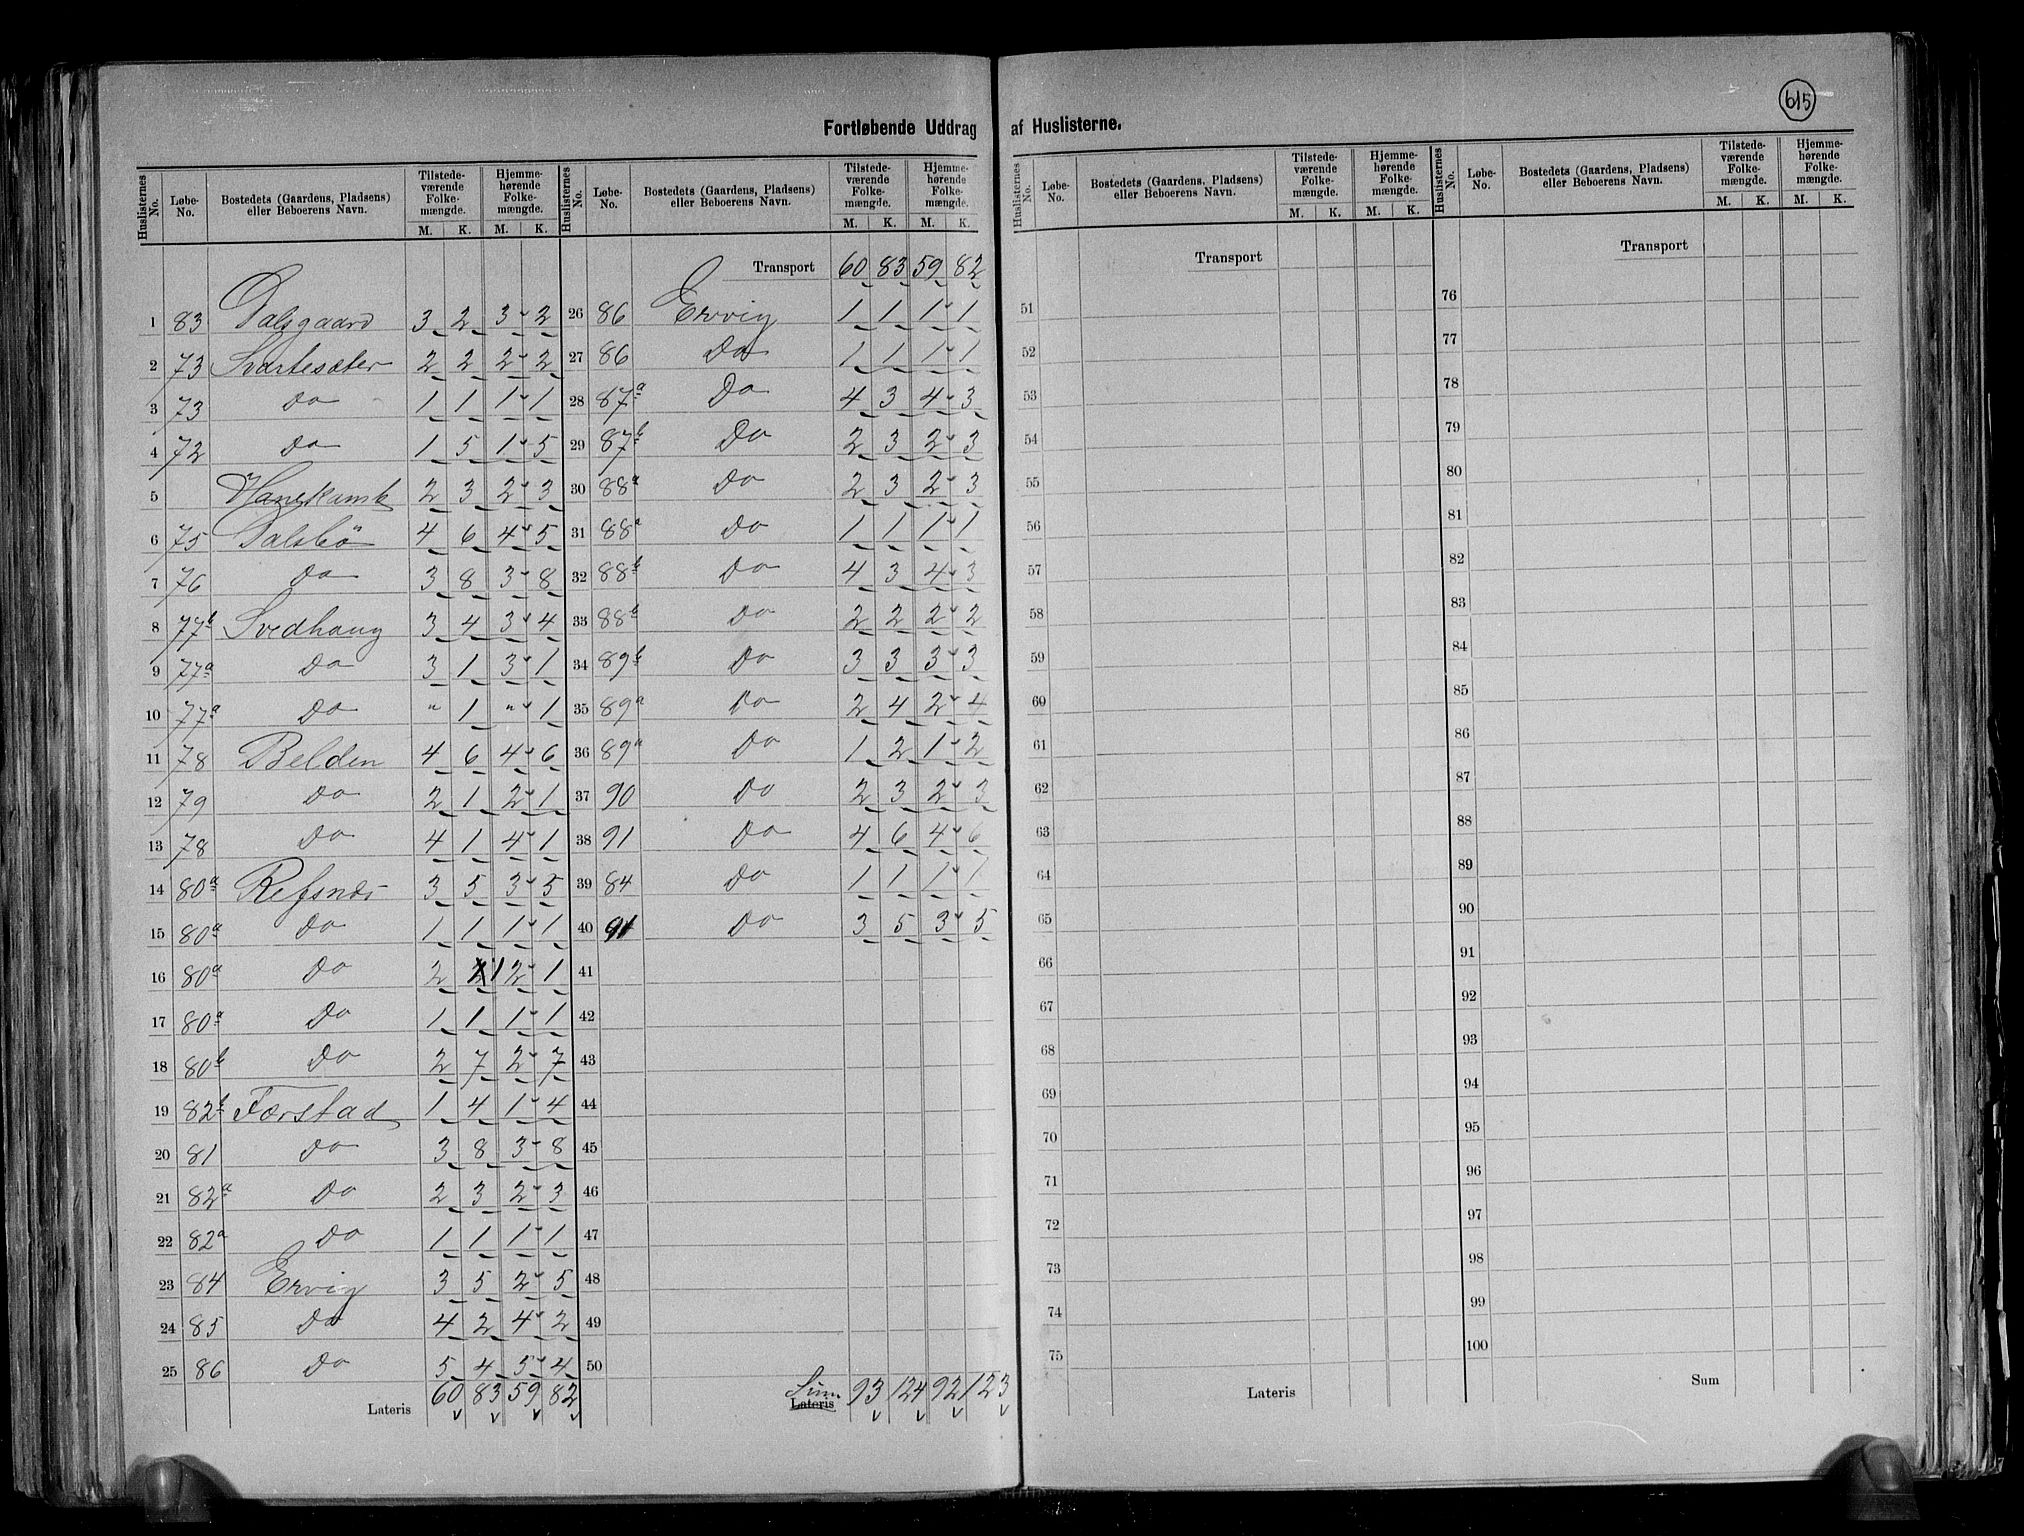 615
Fortløbende Uddrag af Huslisterne.
Huslisternes No. Løbe-No. Bostedets (Gaardens, Pladsens) eller Beboerens Navn. Tilstedeværende Folkemængde. M. K. Hjemmehørende Folkemængde. M. K.
1 83 Dalsgaard 3 2 3 2
2 73 Svartesæter 2 2 2 2
3 73 Do 1 1 1 1
4 72 Do 1 5 1 5
5 Hanekamb 2 3 2 3
6 75 Dalsbö 4 6 4 5
7 76 Do 3 8 3 8
8 77b Svedhaug 3 4 3 4
9 77a Do 3 1 3 1
10 77a Do " 1 " 1
11 78 Belden 4 6 4 6
12 79 Do 2 1 2 1
13 78 Do 4 1 4 1
14 80a Refsnæs 3 5 3 5
15 80a Do 1 1 1 1
16 80a Do 2 1 2 1
17 80a Do 1 1 1 1
18 80b Do 2 7 2 7
19 82b Færstad 1 4 1 4
20 81 Do 3 8 3 8
21 82a Do 2 3 2 3
22 82a Do 1 1 1 1
23 84 Ervig 3 5 2 5
24 85 Do 4 2 4 2
25 86 Do 5 4 5 4
Lateris 60 83 59 82
Huslisternes No. Løbe-No. Bostedets (Gaardens, Pladsens) eller Beboerens Navn. Tilstedeværende Folkemængde. M. K. Hjemmehørende Folkemængde. M. K.
Transport 60 83 59 82
26 86 Ervig 1 1 1 1
27 86 Do 1 1 1 1
28 87a Do 4 3 4 3
29 87b Do 2 3 2 3
30 88a Do 2 3 2 3
31 88a Do 1 1 1 1
32 88b Do 4 3 4 3
33 88b Do 2 2 2 2
34 89b Do 3 3 3 3
35 89a Do 2 4 2 4
36 89a Do 1 2 1 2
37 90 Do 2 3 2 3
38 91 Do 4 6 4 6
39 84 Do 1 1 1 1
40 91 Do 3 5 3 5
41
42
43
44
45
46
47
48
49
50
Sum
Lateris 93 124 92 123
Huslisternes No. Løbe-No. Bostedets (Gaardens, Pladsens) eller Beboerens Navn. Tilstedeværende Folkemængde. M. K. Hjemmehørende Folkemængde. M. K.
Transport
51
52
53
54
55
56
57
58
59
60
61
62
63
64
65
66
67
68
69
70
71
72
73
74
75
Lateris
Huslisternes No. Løbe-No. Bostedets (Gaardens, Pladsens) eller Beboerens Navn. Tilstedeværende Folkemængde. M. K. Hjemmehørende Folkemængde. M. K.
Transport
76
77
78
79
80
81
82
83
84
85
86
87
88
89
90
91
92
93
94
95
96
97
98
99
100
Sum